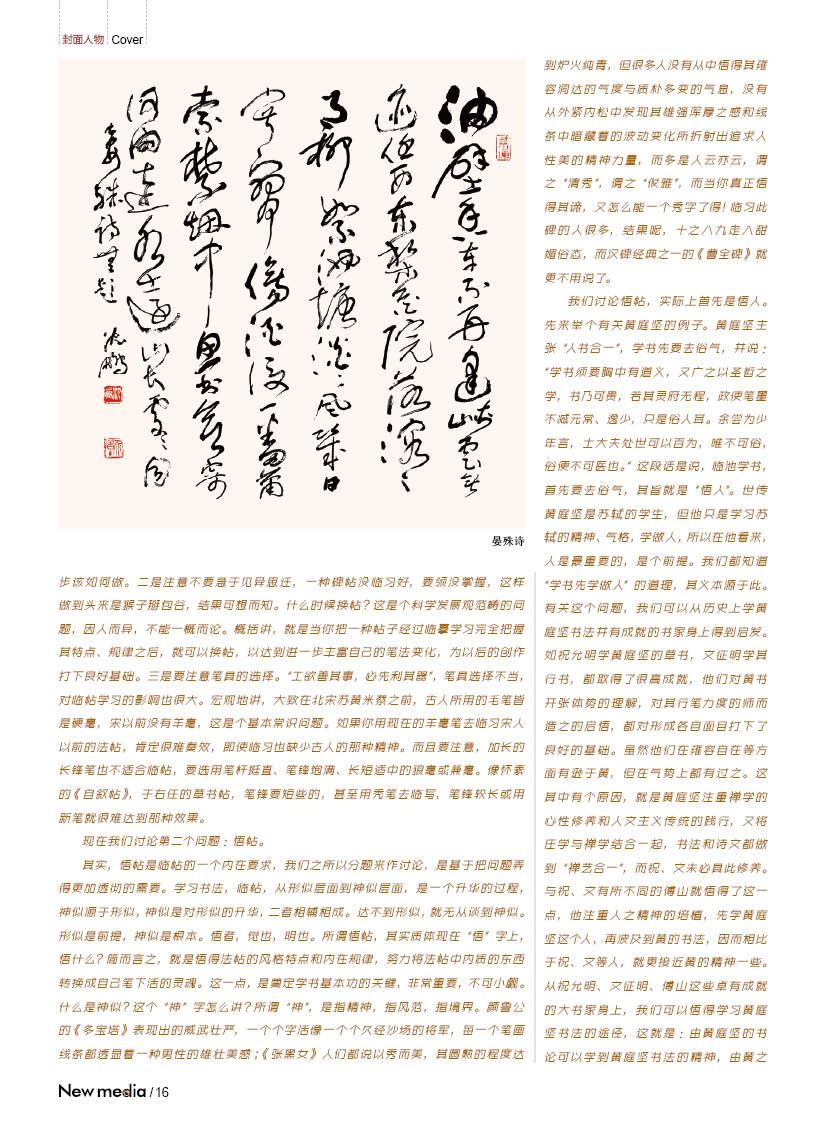 封面人物 Cover
油壁香車不再逢峡雲無
迹任西東梨花院落溶〻
月柳絮池塘淡〻風幾日
寂寥傷酒後一番蕭
索禁烟中魚書欲寄
何由達水遠山長處〻同
晏殊詩無題 沈鹏
晏殊诗
步该如何做。二是注意不要急于见异思迁，一种碑帖没临习好，要领没掌握，这样
做到头来是猴子掰包谷，结果可想而知。什么时候换帖？这是个科学发展观范畴的问
题，因人而异，不能一概而论。概括讲，就是当你把一种帖子经过临摹学习完全把握
其特点、规律之后，就可以换帖，以达到进一步丰富自己的笔法变化，为以后的创作
打下良好基础。三是要注意笔具的选择。“工欲善其事，必先利其器”，笔具选择不当，
对临帖学习的影响也很大。宏观地讲，大致在北宋苏黄米蔡之前，古人所用的毛笔皆
是硬毫，宋以前没有羊毫，这是个基本常识问题。如果你用现在的羊毫笔去临习宋人
以前的法帖，肯定很难奏效，即使临习也缺少古人的那种精神。而且要注意，加长的
长锋笔也不适合临帖，要选用笔杆挺直、笔锋饱满、长短适中的狼毫或兼毫。像怀素
的《自叙帖》，于右任的草书帖，笔锋要短些的，甚至用秃笔去临写，笔锋较长或用
新笔就很难达到那种效果。
现在我们讨论第二个问题：悟帖。
其实，悟帖是临帖的一个内在要求，我们之所以分题来作讨论，是基于把问题弄
得更加透彻的需要。学习书法，临帖，从形似层面到神似层面，是一个升华的过程，
神似源于形似，神似是对形似的升华，二者相辅相成。达不到形似，就无从谈到神似。
形似是前提，神似是根本。悟者，觉也，明也。所谓悟帖，其实质体现在“悟”字上，
悟什么？简而言之，就是悟得法帖的风格特点和内在规律，努力将法帖中内质的东西
转换成自己笔下活的灵魂。这一点，是奠定学书基本功的关键，非常重要，不可小觑。
什么是神似？这个“神”字怎么讲？所谓“神”，是指精神，指风范，指境界。颜鲁公
的《多宝塔》表现出的威武壮严，一个个字活像一个个久经沙场的将军，每一个笔画
线条都透显着一种男性的雄壮美感；《张黑女》人们都说以秀而美，其圆熟的程度达
到炉火纯青，但很多人没有从中悟得其雍
容洞达的气度与质朴多变的气息，没有
从外紧内松中发现其雄强浑厚之感和线
条中暗藏着的波动变化所折射出追求人
性美的精神力量，而多是人云亦云，谓
之“清秀”，谓之“俊雅”，而当你真正悟
得其谛，又怎么能一个秀字了得！临习此
碑的人很多，结果呢，十之八九走入甜
媚俗态，而汉碑经典之一的《曹全碑》就
更不用说了。
我们讨论悟帖，实际上首先是悟人。
先来举个有关黄庭坚的例子。黄庭坚主
张“人书合一”，学书先要去俗气，并说：
“学书须要胸中有道义，又广之以圣哲之
学，书乃可贵，若其灵府无程，政使笔墨
不减元常、逸少，只是俗人耳。余尝为少
年言，士大夫处世可以百为，唯不可俗，
俗便不可医也。”这段话是说，临池学书，
首先要去俗气，其旨就是“悟人”。世传
黄庭坚是苏轼的学生，但他只是学习苏
轼的精神、气格，学做人，所以在他看来，
人是最重要的，是个前提。我们都知道
“学书先学做人”的道理，其义本源于此。
有关这个问题，我们可以从历史上学黄
庭坚书法并有成就的书家身上得到启发。
如祝允明学黄庭坚的草书，文征明学其
行书，都取得了很高成就，他们对黄书
开张体势的理解，对其行笔力度的师而
造之的启悟，都对形成各自面目打下了
良好的基础。虽然他们在雍容自在等方
面有逊于黄，但在气势上都有过之。这
其中有个原因，就是黄庭坚注重禅学的
心性修养和人文主义传统的践行，又将
庄学与禅学结合一起，书法和诗文都做
到“禅艺合一”，而祝、文未必具此修养。
与祝、文有所不同的傅山就悟得了这一
点，他注重人之精神的培植，先学黄庭
坚这个人，再波及到黄的书法，因而相比
于祝、文等人，就更接近黄的精神一些。
从祝允明、文征明、傅山这些卓有成就
的大书家身上，我们可以悟得学习黄庭
坚书法的途径，这就是：由黄庭坚的书
论可以学到黄庭坚书法的精神，由黄之
New media / 16